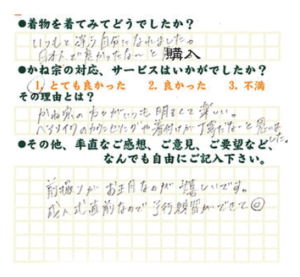 ●着物を着てみてどうでしたか？
いつもと違う自分になれました。
日本人で良かったな〜と 購入
●かね宗の対応、サービスはいかがでしたか？
1. とても良かった　2. 良かった　3. 不満
その理由とは？
かね宗の方々がいつも明るくて楽しい。
ヘアメイクのカウンセリングや着付けが丁寧だな〜と思いました。
●その他、率直なご感想、ご意見、ご要望など、
なんでも自由にご記入下さい。
前撮りがお正月なのが嬉しいです。
成人式直前なので予行練習ができて◎